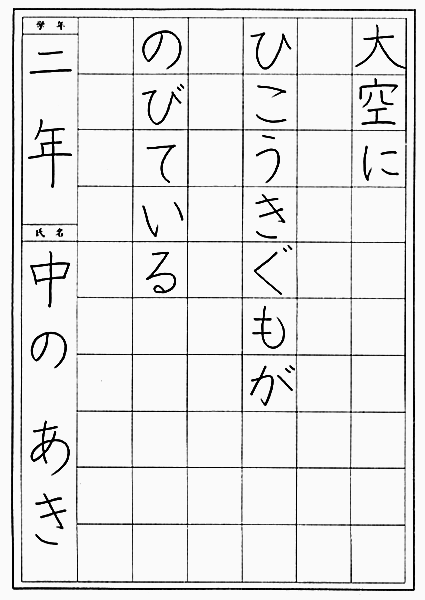 大空に
ひこうきぐもが
のびている
学年
二年
氏名
中の あき